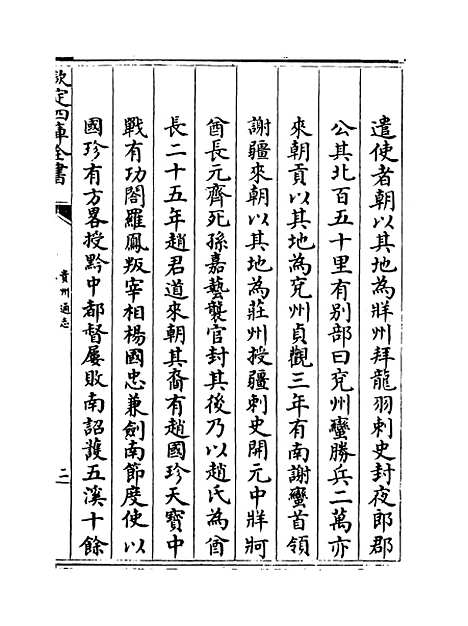 遣使者朝以其地為牂州拜龍羽刺史封夜郎郡
公其北百五十里有別部曰兖州蠻勝兵二萬亦
來朝貢以其地為兖州貞觀三年有南謝蠻首領
謝疆來朝以其地為莊州授疆刺史開元中牂牁
酋長元齊死孫嘉藝襲官封其後乃以趙氏為酋
長二十五年趙君道來朝其裔有趙國珍天寶中
戰有功閤羅鳳叛宰相楊國忠兼劍南節度使以
國珍有方畧授黔中都督屢敗南詔護五溪十餘
欽定四庫全書
貴州通志
二